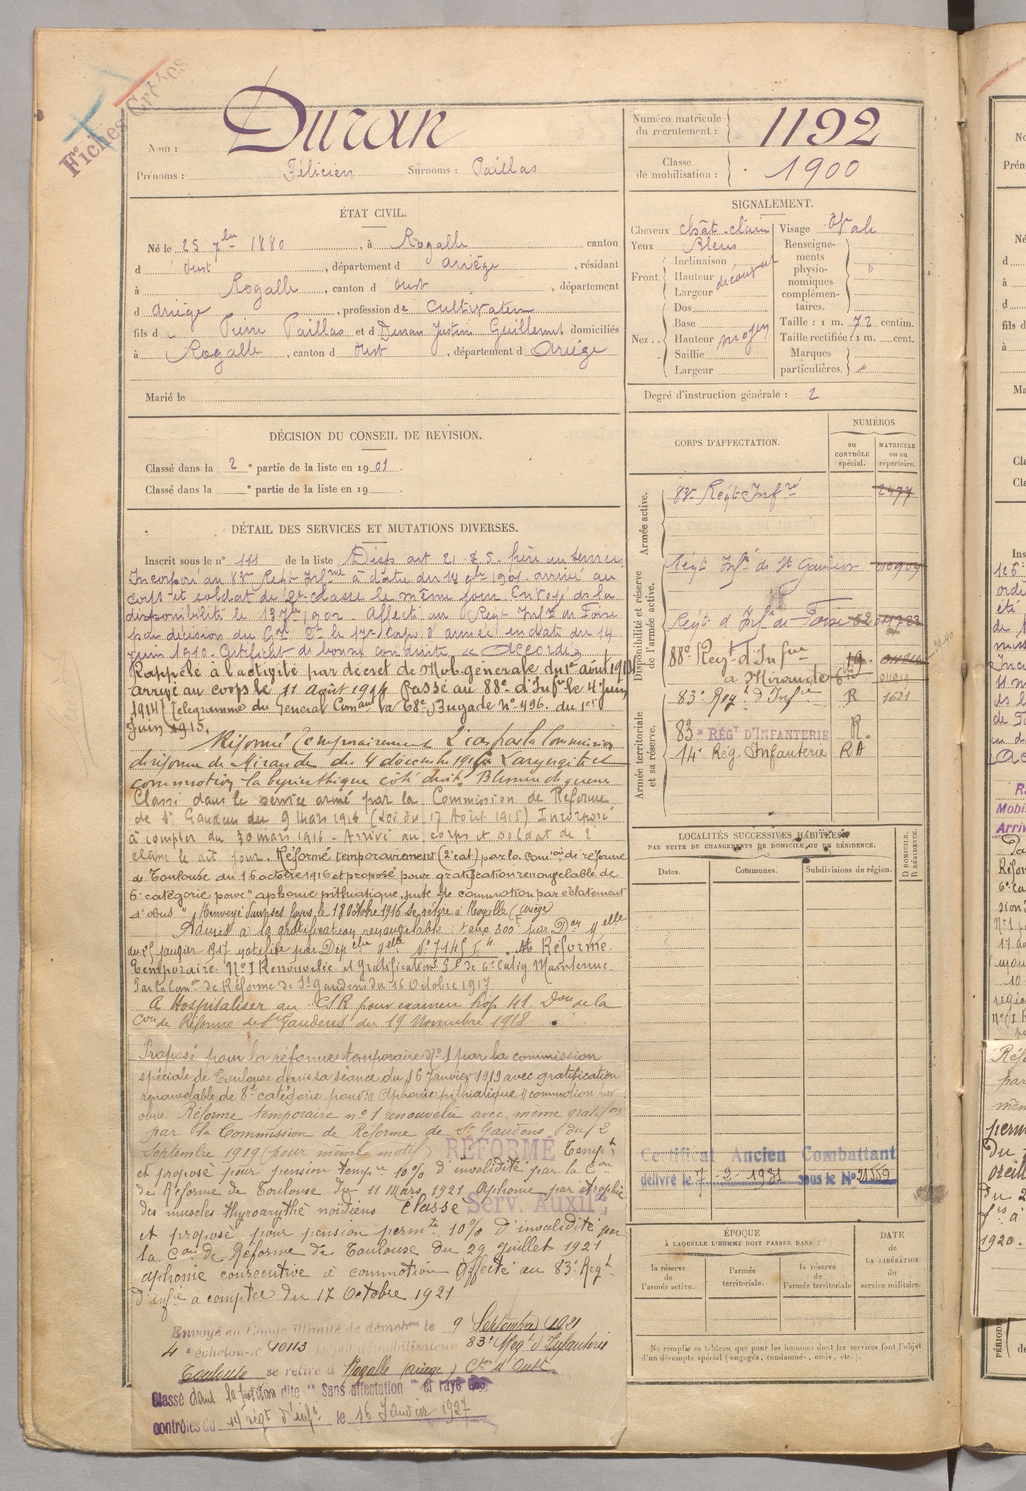 Fiches Créées
Nom : Duran
Prénoms : Félicien Surnoms : Paillas
Numéro matricule du recrutement : 1192
Classe de mobilisation : 1900
ÉTAT CIVIL.
Né le 25 7bre 1880, à Rogalle canton
d Oust, département d Ariège, résidant
à Rogalle, canton d Oust, département
d Ariège, profession de Cultivateur
fils d Paillas et d Duran Justine domiciliés
à Rogalle, canton d Oust, département d Ariège
Marié le
SIGNALEMENT.
Cheveux chât-clair Visage Ovale
Yeux Bleus
Front Inclinaison
Hauteur découvert
Largeur
Nez Dos
Base
Hauteur moyen
Saillie
Largeur
Renseignements physionomiques complémentaires.
Taille : 1 m. 72 centim.
Taille rectifiée : 1 m. cent.
Marques particulières.
Degré d'instruction générale : 2
DÉCISION DU CONSEIL DE REVISION.
Classé dans la 2e partie de la liste en 1901.
Classé dans la e partie de la liste en 19
DÉTAIL DES SERVICES ET MUTATIONS DIVERSES.
Inscrit sous le n° 111 de la liste Disp art 21 frère au service
Incorporé au 83e Régt Infrie à dater du 14 9bre 1901 arrivé au
corps et soldat de 2e classe le même jour. Envoyé dans la
disponibilité le 1902. Affecté au Régt Infie de Foix
par décision du Gal Ct le 17e Corps d'armée en date du 14
Juin 1910. Certificat de bonne conduite Accordé
Rappelé à l'activité par décret de Mob. générale du 1er août 1914
arrivé au corps le 11 Août 1914 Passé au 88e d'Infie le 4 Juin
1914 (Télégramme du Général Comant la 68e Brigade N° 496. du 1er
Juin 1915.
Réformé Temporairement 2e cat par la Commission
de réforme de Mirande du 4 décembre 1915 Laryngite et
commotion labyrinthique côté droit. Blessure de guerre
Classé dans le service armé par la Commission de Réforme
de St Gaudens du 9 Mars 1916 (Loi du 17 Août 1915) Incorporé
à compter du 30 mars 1916 - Arrivé au corps et soldat de 2e
classe le dit jour. Réformé temporairement (2e cat.) par la Comon de réforme
de Toulouse du 16 octobre 1916 et proposé pour gratification renouvelable de
6e catégorie pour " aphonie pithiatique, suite de commotion par éclatement
d'obus " Envoyé dans ses foyers le 18 octobre 1916 se retire à Rogalle (Ariège)
Admis à la gratification renouvelable taux 300f par Don Mlle
du 25 janvier 1917 notifiée par Dépêche Mlle N° 7145 Réforme
Temporaire N° 1 Renouvelée et Gratification de 6e Catég Maintenue
Par la Comon de Réforme de St Gaudens du 16 Octobre 1917
A Hospitaliser au CSR pour examen hôp 41. Don de la
Con de Réforme de St Gaudens du 19 Novembre 1918.
Proposé pour la réforme temporaire N° 1 par la commission
spéciale de Toulouse dans sa séance du 16 Janvier 1919 avec gratification
renouvelable de 8e catégorie pour " Aphonie pithiatique commotion par
obus. Réforme temporaire n° 1 renouvelée avec même gratifon
par la Commission de Réforme de St Gaudens du 2
Septembre 1919 (pour même motif) RÉFORMÉ Tempt
et proposé pour pension tempre 10% d'invalidité par la Con
de Réforme de Toulouse du 11 Mars 1921 Aphonie par atrophie
des muscles thyroarythénoïdiens Classé Serv. Auxil.
et proposé pour pension permte 10% d'invalidité par
la Con de Réforme de Toulouse du 29 Juillet 1921
aphonie consécutive à commotion Affecté au 83e Régt
d'infie à compter du 17 Octobre 1921
Envoyé en Congé illimité de démobon le 9 Septembre 1921
4e échelon n° 10113 dépôt démobilisateur 83e Régt d'Infanterie
Toulouse se retire à Rogalle Ariège) Cton d'Oust
Classé dans la position dite " Sans affectation " et rayé des
contrôles du 14e régt d'infie le 16 Janvier 1927
CORPS D'AFFECTATION.
NUMÉROS
au CONTRÔLE spécial.
MATRICULE ou au répertoire.
Armée active.
83e Régt Infrie 2477
Disponibilité et réserve de l'armée active.
Régt Infie de St Gaudens
Régt d'Infie de Foix
88e Régt d'Infrie
à Mirande
83e Régt d'Infie R 1621
Armée territoriale et sa réserve.
83e RÉGT D'INFANTERIE R.
14e Rég. Infanterie RA
LOCALITÉS SUCCESSIVES HABITÉES
PAR SUITE DE CHANGEMENTS DE DOMICILE OU DE RÉSIDENCE.
Dates. Communes. Subdivisions de région. D DOMICILE. R RÉSIDENCE.
Certificat Ancien Combattant
délivré le 7-2-1931 sous le N° 21559
ÉPOQUE
À LAQUELLE L'HOMME DOIT PASSER DANS :
la réserve de l'armée active.
l'armée territoriale.
la réserve de l'armée territoriale
DATE de LA LIBÉRATION du service militaire.
Ne remplir ce tableau que pour les hommes dont les services font l'objet
d'un décompte spécial (engagés, condamnés, omis, etc.).